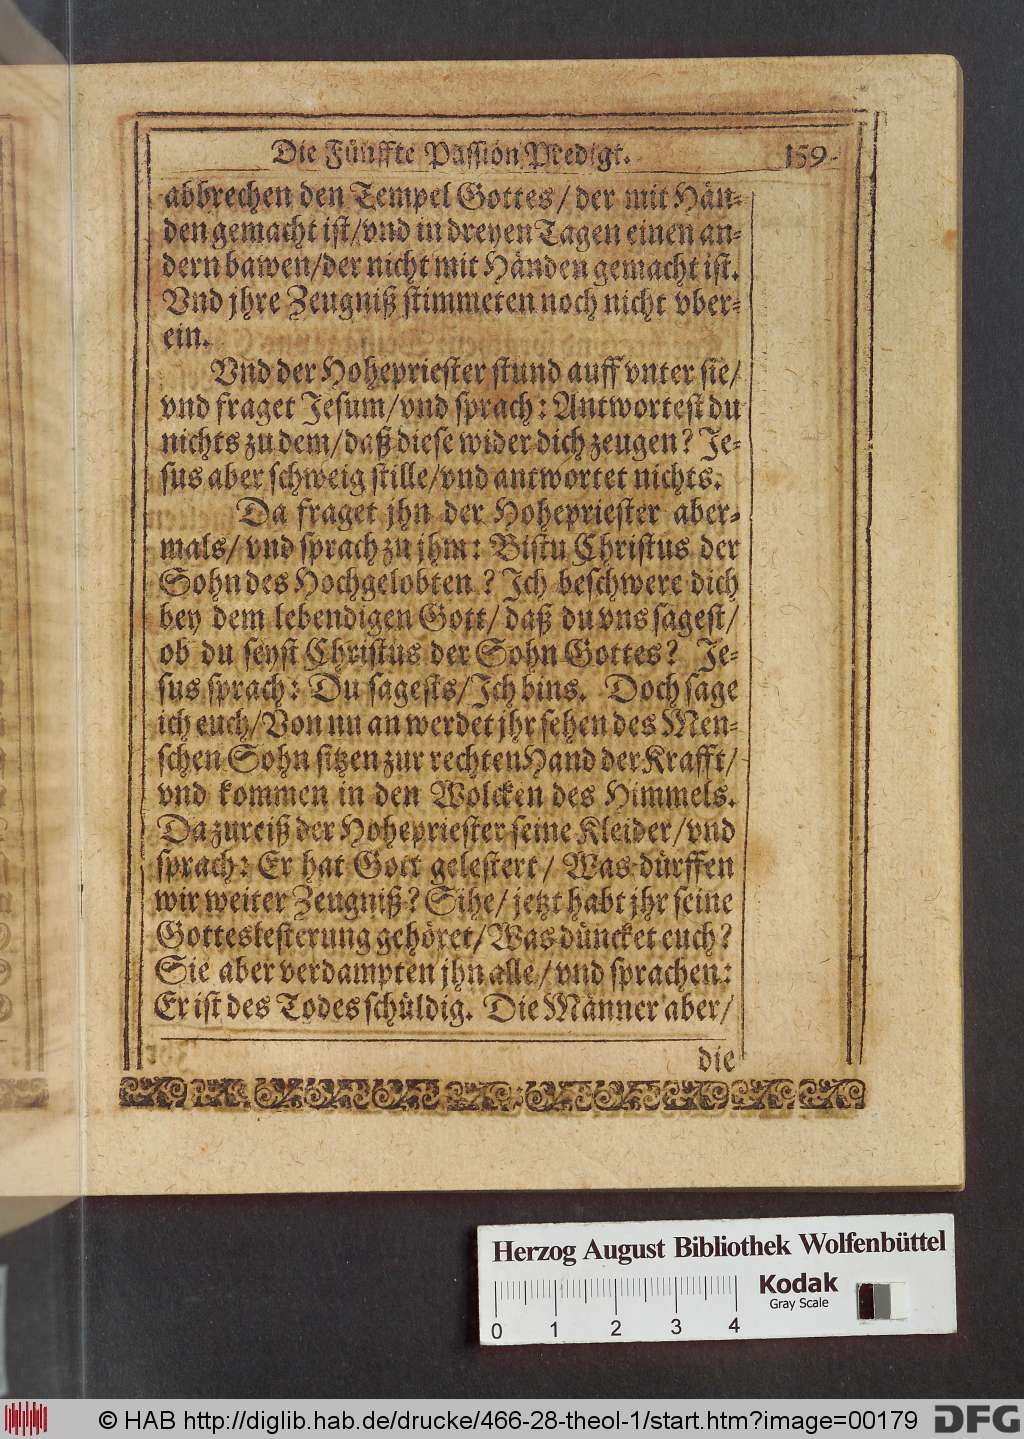 Die Fünffte Passion Predigt. 159.
abbrechen den Tempel Gottes/ der mit Hän-
den gemacht ist/vnd in dreyen Tagen einen an-
dern bawen/der nicht mit Händen gemacht ist.
Vnd jhre Zeugniß stimmeten noch nicht vber-
ein.
Vnd der Hohepriester stund auff vnter sie/
vnd fraget Jesum/vnd sprach: Antwortest du
nichts zu dem/daß diese wider dich zeugen? Je-
sus aber schweig stille/vnd antwortet nichts.
Da fraget jhn der Hohepriester aber-
mals/ vnd sprach zu jhm: Bistu Christus der
Sohn des Hochgelobten? Ich beschwere dich
bey dem lebendigen Gott/ daß du vns sagest/
ob du seyst Christus der Sohn Gottes? Je-
sus sprach: Du sagests/Ich bins. Doch sage
ich euch/Von nu an werdet jhr sehen des Men-
schen Sohn sitzen zur rechten Hand der Krafft/
vnd kommen in den Wolcken des Himmels.
Da zureiß der Hohepriester seine Kleider/vnd
sprach: Er hat Gott gelestert/ Was dürffen
wir weiter Zeugniß? Sihe/ jetzt habt jhr seine
Gotteslesterung gehöret/Was düncket euch?
Sie aber verdampten jhn alle/vnd sprachen:
Er ist des Todes schüldig. Die Männer aber/
die
Herzog August Bibliothek Wolfenbüttel
Kodak
Gray Scale
0 1 2 3 4
© HAB http://diglib.hab.de/drucke/466-28-theol-1/start.htm?image=00179 DFG